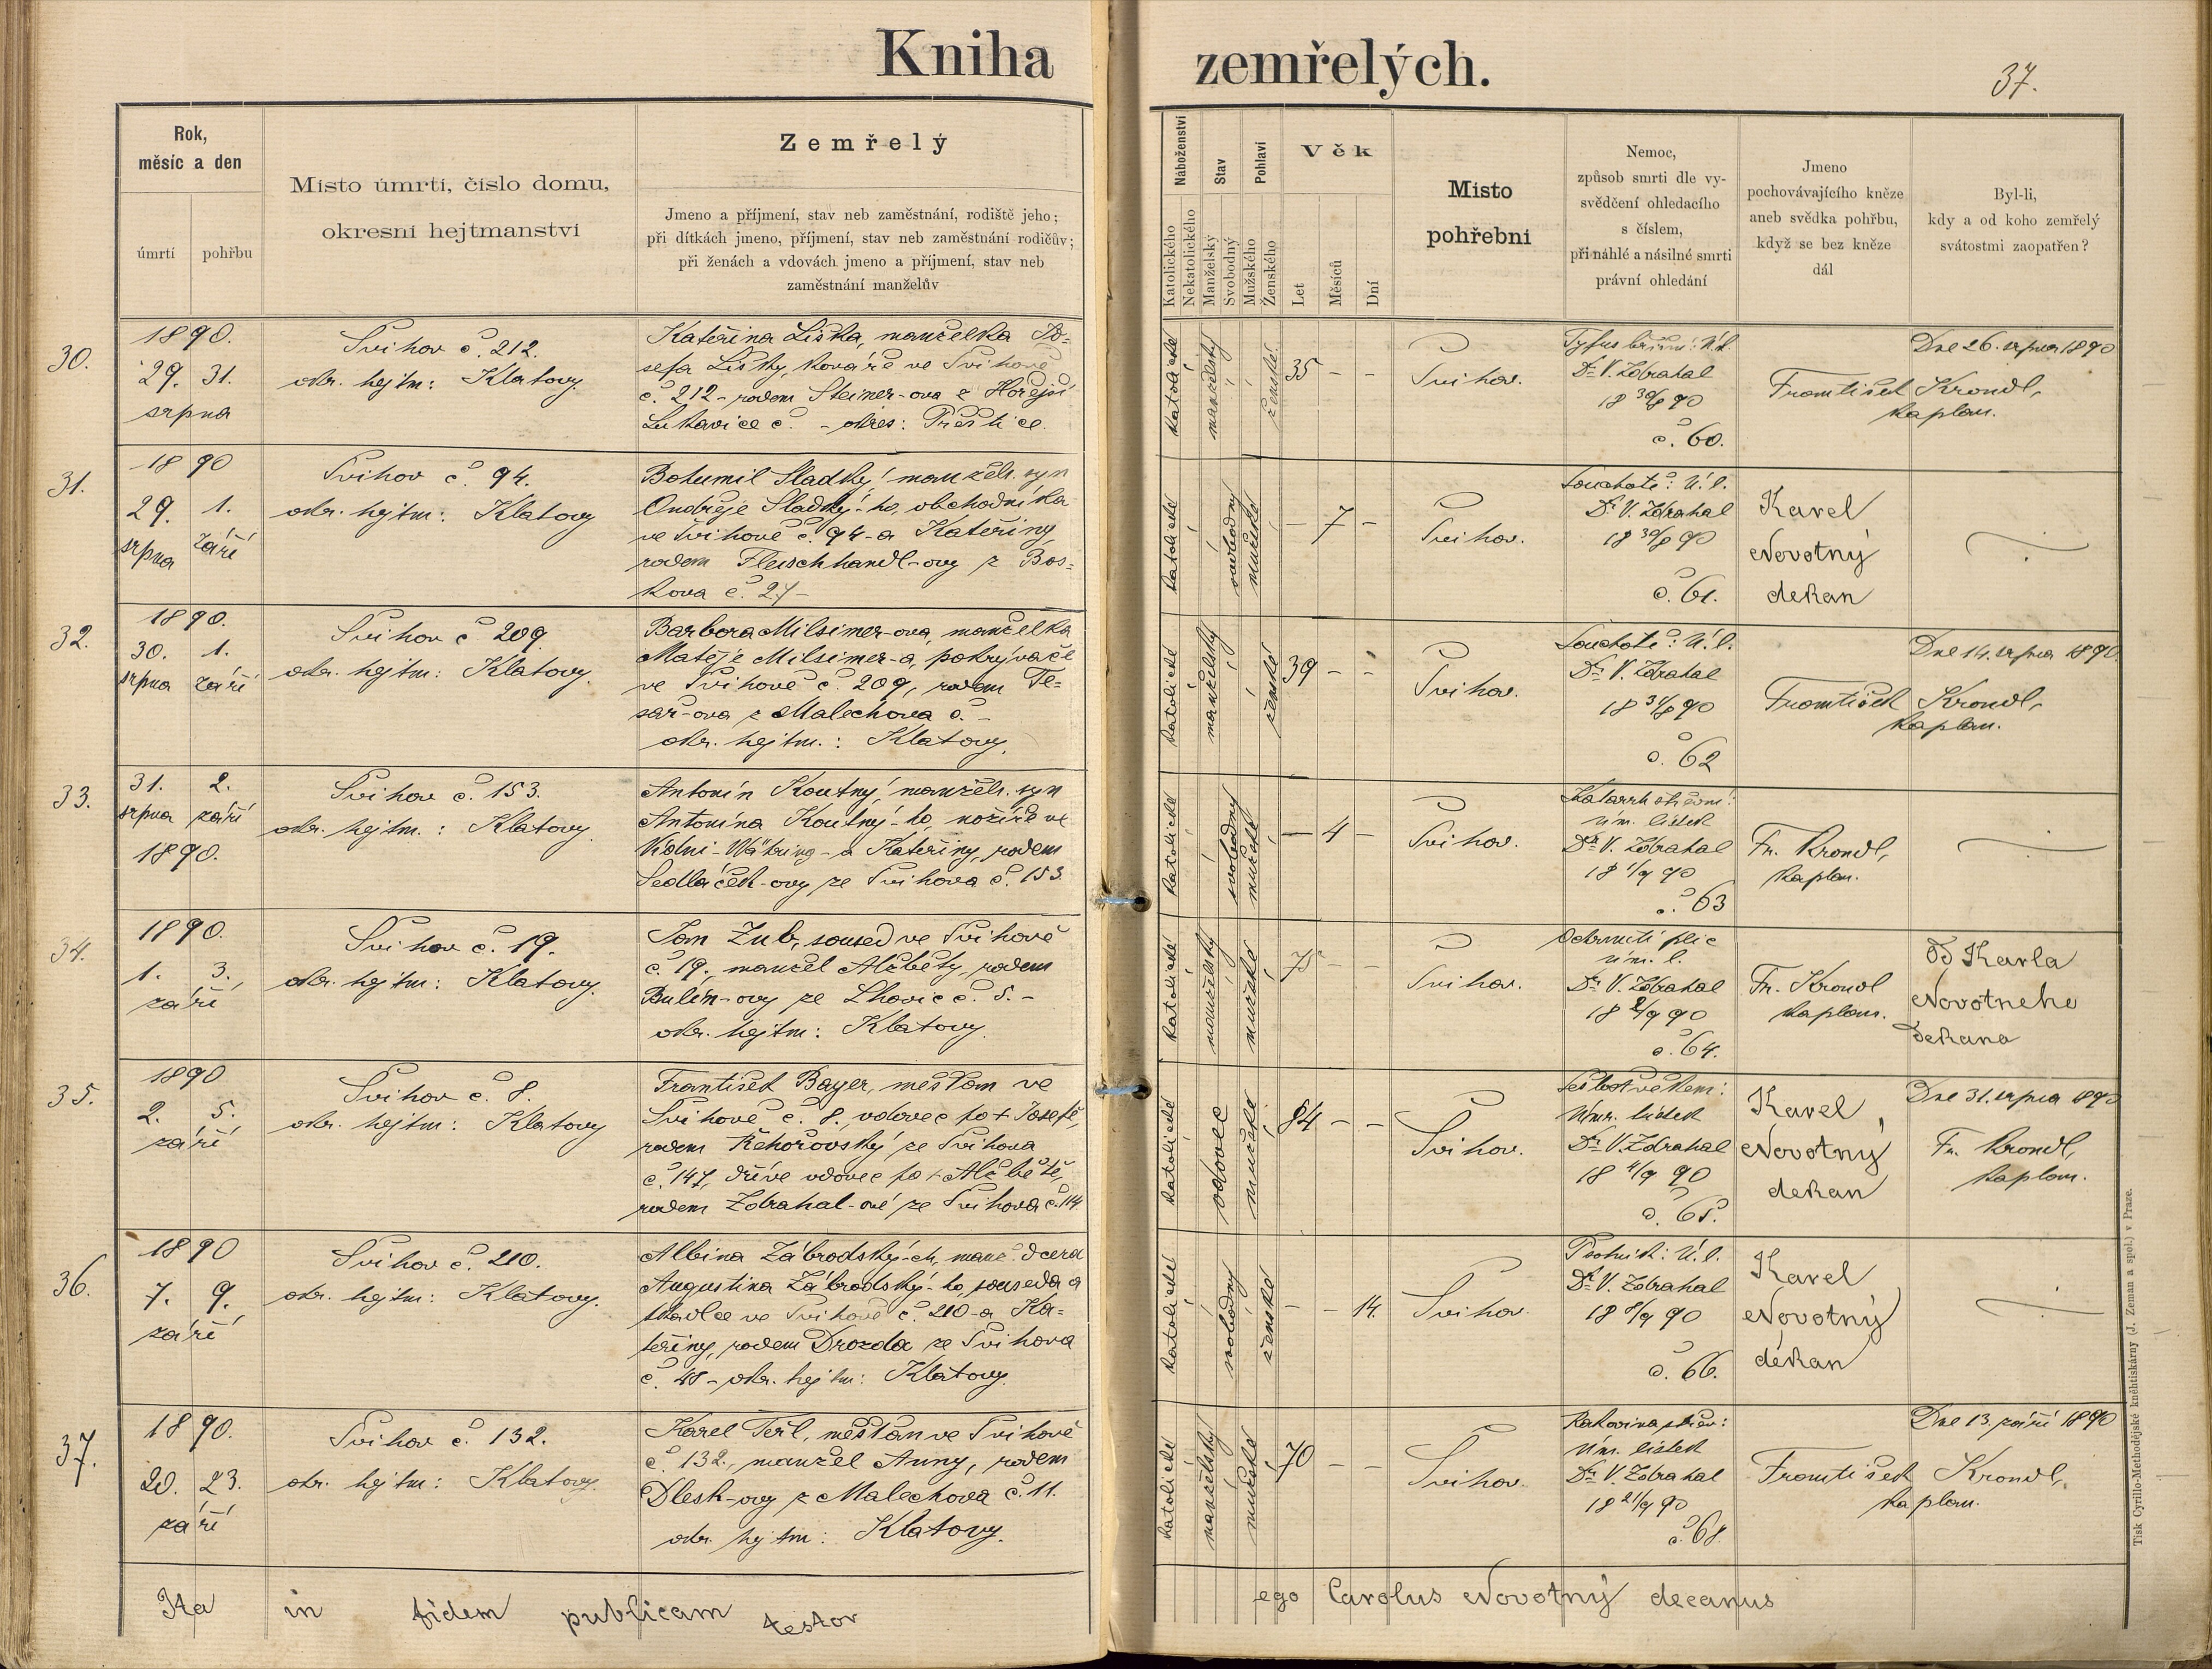 Kniha zemřelých.
37.
Rok,
měsíc a den
úmrtí
pohřbu
Místo úmrtí, číslo domu,
okresní hejtmanství
Zemřelý
Jmeno a příjmení, stav neb zaměstnání, rodiště jeho;
při dítkách jmeno, příjmení, stav neb zaměstnání rodičův;
při ženách a vdovách jmeno a příjmení, stav neb
zaměstnání manželův
Náboženství
Katolického
Nekatolického
Stav
Manželský
Svobodný
Pohlaví
Mužského
Ženského
Věk
Let
Měsíců
Dní
Místo
pohřební
Nemoc,
způsob smrti dle vy-
svědčení ohledacího
s číslem,
při náhlé a násilné smrti
právní ohledání
Jmeno
pochovávajícího kněze
aneb svědka pohřbu,
když se bez kněze
dál
Byl-li,
kdy a od koho zemřelý
svátostmi zaopatřen?
30.
1890.
29. 31.
srpna
Švihov č. 212.
okr. hejtm: Klatovy
Kateřina Liška, manželka Jo-
sefa Lišky, kováře ve Švihově
č. 212 - rodem Steiner-ova z Hořejší
Lukavice č. - okres: Přeštice.
katolické
manželský
ženské
35 - -
Švihov.
Tyfus břišní: Ú.l.
Dr V. Zdrahal
18 30/8 90
č. 60.
František Krondl,
kaplan.
Dne 26. srpna 1890
31.
1890
29. 1.
srpna září
Švihov č. 94.
okr. hejtm: Klatovy
Bohumil Sladký, manžels. syn
Ondřeje Sladký-ho, obchodníka
ve Švihově č. 94 - a Kateřiny,
rodem Fleischhandl-ovy z Bos-
kova č. 27 -
katolické
svobodný
mužské
- 7 -
Švihov.
Souchotě: Ú.l.
Dr V. Zdrahal
18 30/8 90
č. 61.
Karel
Novotný
dekan
32.
1890.
30. 1.
srpna září
Švihov č. 209
okr. hejtm: Klatovy.
Barbora Milsimer-ova, manželka
Matěje Milsimer-a, pokrývače
ve Švihově č. 209, rodem Te-
sař-ova z Malechova č. -
okr. hejtm.: Klatovy.
katolické
manželský
ženské
39 - -
Švihov.
Souchotě: Ú.l.
Dr V. Zdrahal
18 31/8 90
č. 62
František Krondl,
kaplan.
Dne 14. srpna 1890
33.
31. 2.
srpna září
1890.
Švihov č. 153.
okr. hejtm.: Klatovy.
Antonín Koutný, manžels. syn
Antonína Koutný-ho, nožíře ve
Vídni - Währing - a Kateřiny, rodem
Sedláček-ovy ze Švihova č. 153
katolické
svobodný
mužské
- 4 -
Švihov.
Katarrh střevní:
úm. lístek
Dr V. Zdrahal
18 1/9 90
č. 63
Fr. Krondl,
kaplan.
34.
1890.
1. 3.
září
Švihov č. 19.
okr. hejtm: Klatovy.
Jan Zub, soused ve Švihově
č. 19., manžel Alžběty, rodem
Bulín-ovy ze Lhovic č. 5. -
okr. hejtm: Klatovy.
katolické
manželský
mužské
75 - -
Švihov.
Ochrnutí plic
úm. l.
Dr V. Zdrahal
18 2/9 90
č. 64.
Fr. Krondl
kaplan.
Od Karla
Novotneho
dekana
35.
1890
2. 5.
září
Švihov č. 8.
okr. hejtm: Klatovy
František Bayer, měšťan ve
Švihově č. 8., vdovec po + Josefě,
rodem Řehořovský ze Švihova
č. 147, dříve vdovec po + Alžbětě,
rodem Zdrahal-ové ze Švihova č. 114.
katolické
vdovec
mužské
84 - -
Švihov.
Sešlost věkem:
Úmr. lístek
Dr V. Zdrahal
18 4/9 90
č. 65.
Karel
Novotný
dekan
Dne 31. srpna 1890
Fr. Krondl,
kaplan.
36.
1890
7. 9.
září
Švihov č. 210.
okr. hejtm: Klatovy.
Albina Zábrodský-ch, manž. dcera
Augustina Zábrodský-ho, souseda a
tkadlce ve Švihově č. 210 - a Ka-
teřiny, rodem Drozda ze Švihova
č. 48 - okr. hejtm: Klatovy.
katolické
svobodný
ženské
- - 14.
Švihov.
Psotník: Ú.l.
Dr V. Zdrahal
18 8/9 90
č. 66.
Karel
Novotný
děkan
37.
1890.
20. 23.
září
Švihov č. 132.
okr. hejtm: Klatovy.
Karel Terl, měšťan ve Švihově
č. 132., manžel Anny, rodem
Dlesk-ovy z Malechova č. 11.
okr. hejtm: Klatovy.
katolické
manželský
mužské
70 - -
Švihov.
Rakovina střev:
Úm. lístek
Dr V. Zdrahal
18 21/9 90
č. 68.
František Krondl,
kaplan.
Dne 13. září 1890
Ita in fidem publicam testor
ego Carolus Novotný decanus
Tisk Cyrillo-Methodějské kněhtiskárny (J. Zeman a spol.) v Praze.